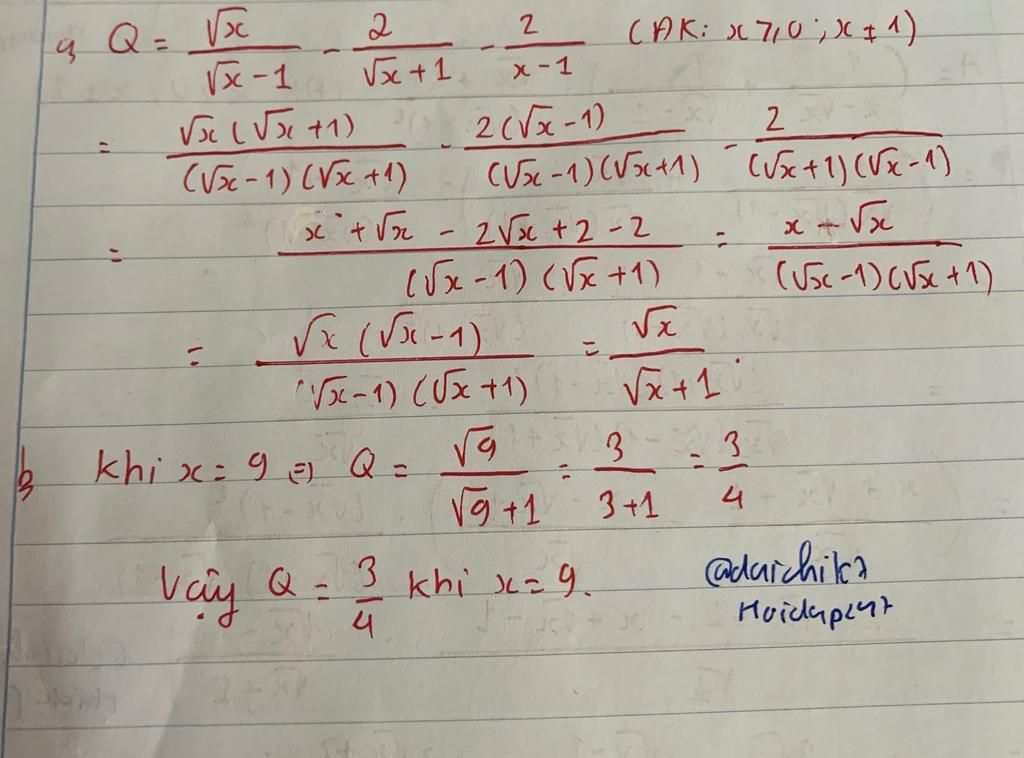 a, Q = √x/(√x − 1) − 2/(√x + 1) − 2/(x − 1) (ĐK: x ≥ 0; x ≠ 1)
= √x(√x + 1)/((√x − 1)(√x + 1)) − 2(√x − 1)/((√x − 1)(√x + 1)) − 2/((√x + 1)(√x − 1))
= (x + √x − 2√x + 2 − 2)/((√x − 1)(√x + 1)) = (x − √x)/((√x − 1)(√x + 1))
= √x(√x − 1)/((√x − 1)(√x + 1)) = √x/(√x + 1).
b, Khi x = 9 => Q = √9/(√9 + 1) = 3/(3 + 1) = 3/4
Vậy Q = 3/4 khi x = 9.
@daichik7
Hoidap247